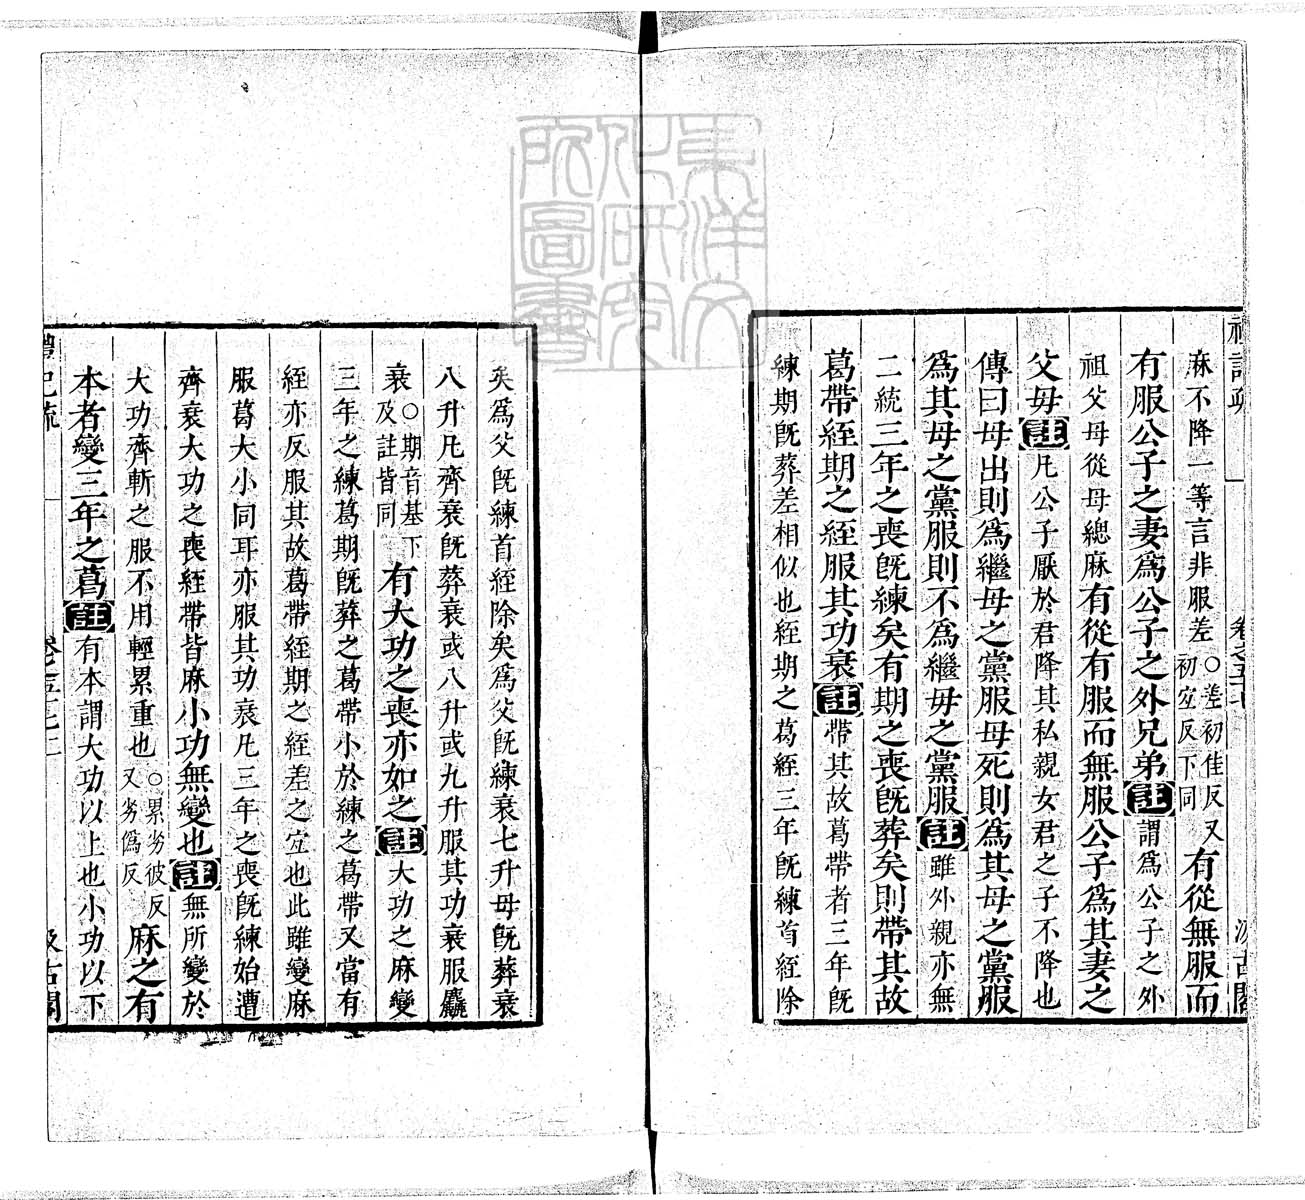 麻不降一等言非服差○差初佳反又初宜反下同有從無服而
有服公子之妻爲公子之外兄弟註謂爲公子之外
祖父母從母緦麻有從有服而無服公子爲其妻之
父母註凡公子厭於君降其私親女君之子不降也
傳曰母出則爲繼母之黨服母死則爲其母之黨服
爲其母之黨服則不爲繼母之黨服註雖外親亦無
二統三年之喪旣練矣有期之喪旣葬矣則帶其故
葛帶絰期之絰服其功衰註帶其故葛帶者三年旣
練期旣葬差相似也絰期之葛絰三年旣練首絰除
矣爲父旣練首絰除矣爲父旣練衰七升母旣葬衰
八升凡齊衰旣葬衰或八升或九升服其功衰服麤
衰○期音基下及註皆同有大功之喪亦如之註大功之麻變
三年之練葛期旣葬之葛帶小於練之葛帶又當有
絰亦反服其故葛帶絰期之絰差之宜也此雖變麻
服葛大小同耳亦服其功衰凡三年之喪旣練始遭
齊衰大功之喪絰帶皆麻小功無變也註無所變於
大功齊斬之服不用輕累重也○累劣彼反又劣僞反麻之有
本者變三年之葛註有本謂大功以上也小功以下